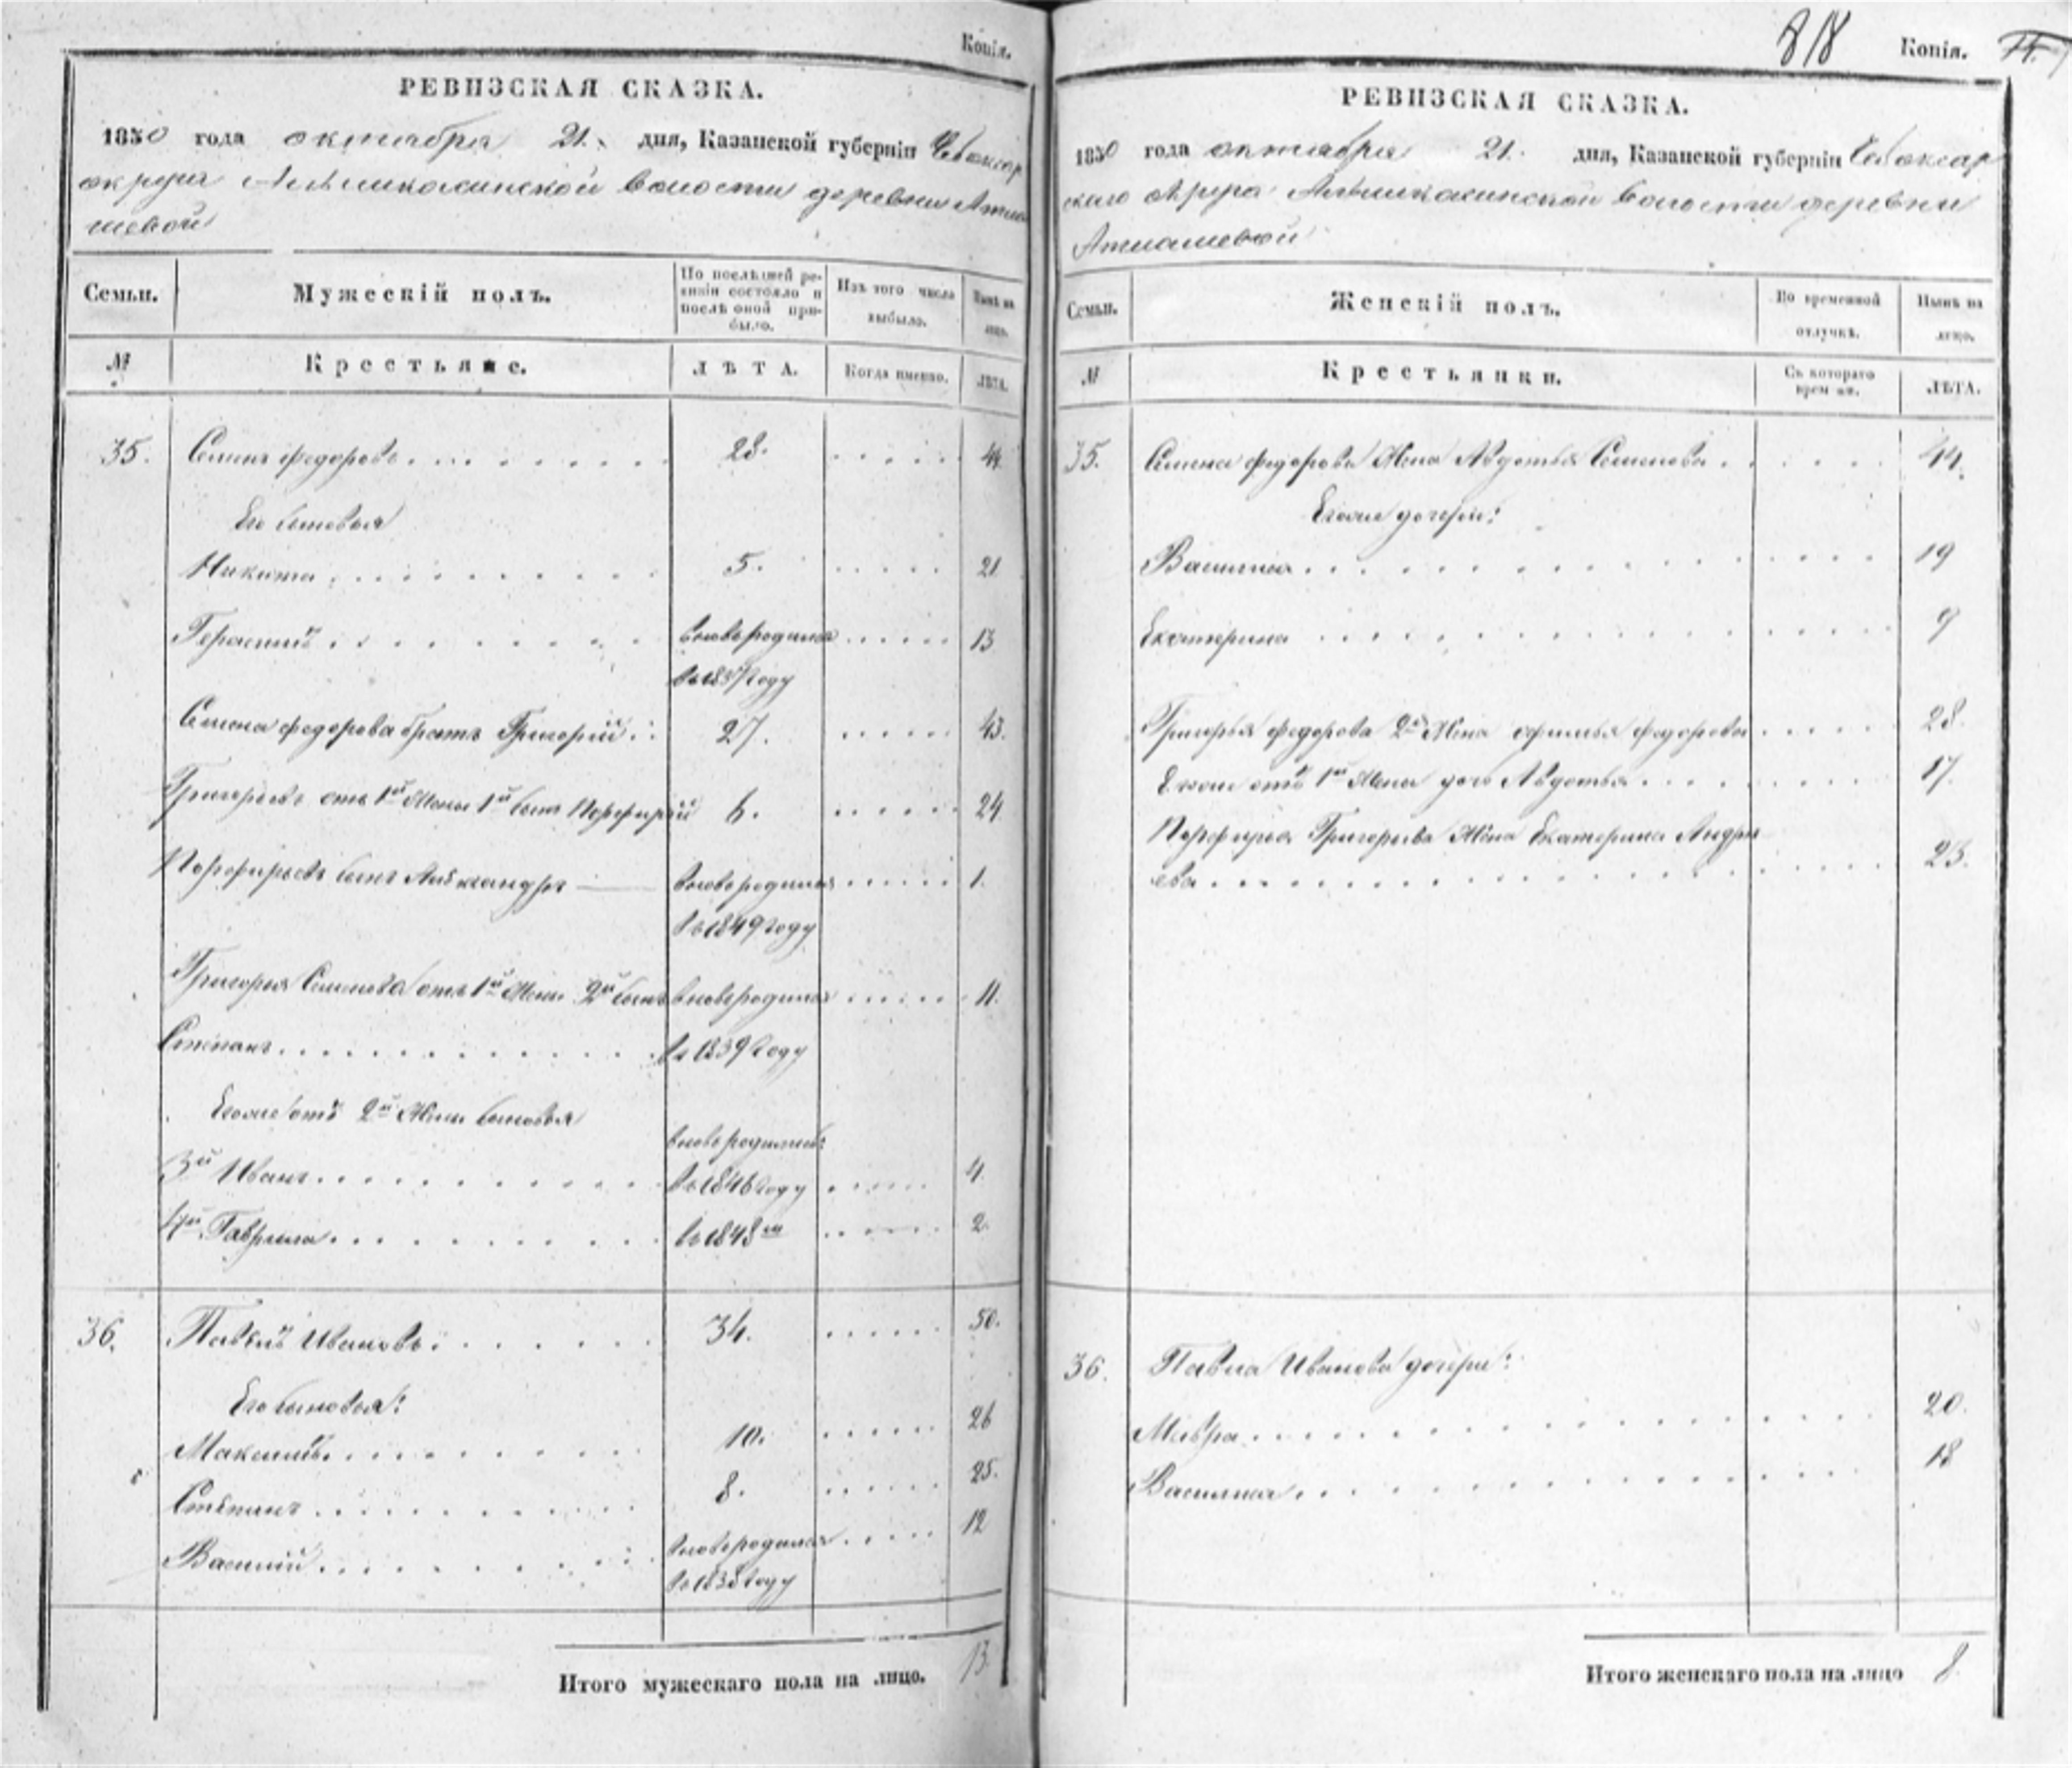 Копія.
РЕВИЗСКАЯ СКАЗКА.
1850 года октября 21. дня, Казанской губерніи Чебоксар
округа волости деревни Атла
шевой
Семьи.
Мужескій полъ.
По послѣдней ре-
визіи состояло и
послѣ оной при-
было.
Изъ того числа
выбыло.
Нынѣ на
лицо.
№
Крестьяне.
ЛѢТА.
Когда именно.
ЛѢТА.
35. Семенъ Федоровъ 28. 44
Его сыновья
Никита 5. 21
Герасимъ вновь родился 13
въ 1837 году
Семена Федорова братъ Григорій 27. 43.
Григорьевъ отъ 1й жены 1й сынъ Порфирій 6. 24
Порфирьевъ сынъ Александръ вновь родился 1.
въ 1849 году
Григорья Семенова отъ 1й жены 2й сынъ вновь родился 11.
Степанъ въ 1839 году
Его же отъ 2й жены сыновья
вновь родились:
3й Иванъ въ 1846 году 4
4й Гаврила въ 1848м 2.
36. Павелъ Ивановъ 34. 50.
Его сыновья:
Максимъ 10. 26
Степанъ 8. 25.
Василій вновь родился 12
въ 1838 году
Итого мужескаго пола на лицо. 13
818 Копія.
РЕВИЗСКАЯ СКАЗКА.
1850 года октября 21. дня, Казанской губерніи Чебоксар
скаго округа волости деревни
Атлашевой
Семьи.
Женскій полъ.
Во временной
отлучкѣ.
Нынѣ на
лицо.
№
Крестьянки.
Съ котораго
времени.
ЛѢТА.
35. Семена Федорова жена Авдотья Семенова 44.
Его же дочери:
Василиса 19
Екатерина 9
Григорья Федорова 2я жена Офимья Федорова 28.
Его же отъ 1й жены дочь Авдотья 17.
Порфирья Григорьева жена Екатерина Андре
ева 23.
36. Павла Иванова дочери:
Мавра 20.
Василиса 18
Итого женскаго пола на лицо 8